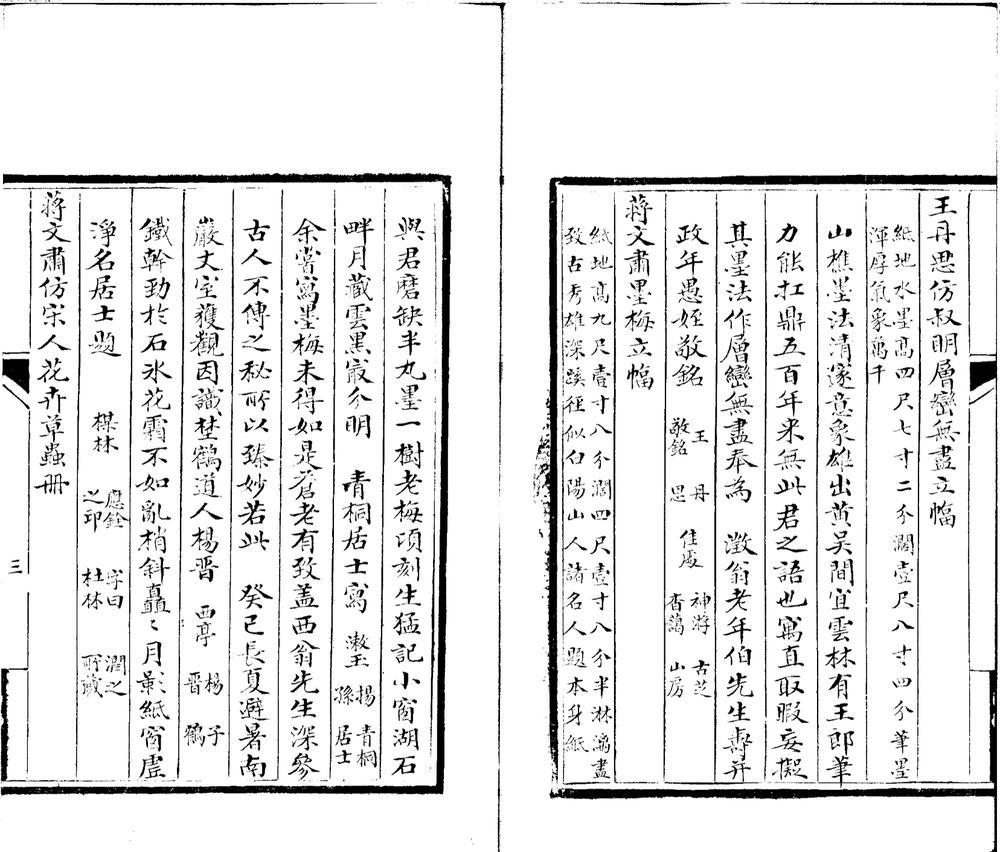 王丹思仿叔明層巒無盡立幅
紙地水墨高四尺七寸二分濶壹尺八寸四分筆墨
渾厚氣象萬千
山樵墨法清邃意象雄出黄吴間宜雲林有王郎筆
力能扛鼎五百年来無此君之語也寓直取暇妄擬
其墨法作層巒無盡奉為　澂翁老年伯先生壽并
政年愚姪敬銘　王敬銘　丹思　佳處　神游杏藹　古芝山房
蒋文肅墨梅立幅
紙地高九尺壹寸八分濶四尺壹寸八分半淋漓盡
致古秀雄深蹊徑似白陽山人諸名人題本身紙
與君磨缺半丸墨一樹老梅頃刻生猛記小窗湖石
畔月藏雲黒最分明　青桐居士寫　漱玉　楊孫　青桐居士
余嘗寫墨梅未得如是蒼老有致盖西翁先生深參
古人不傳之秘所以臻妙若此　癸巳長夏避暑南
巖丈室獲觀因識埜鶴道人楊晋　西亭　楊晋　子鶴
鐵幹勁於石氷花霜不如亂梢斜矗〻月影紙窗虗
淨名居士題　楳林　應銓之印　字曰杜林　潤之所藏
蒋文肅仿宋人花卉草蟲册
三